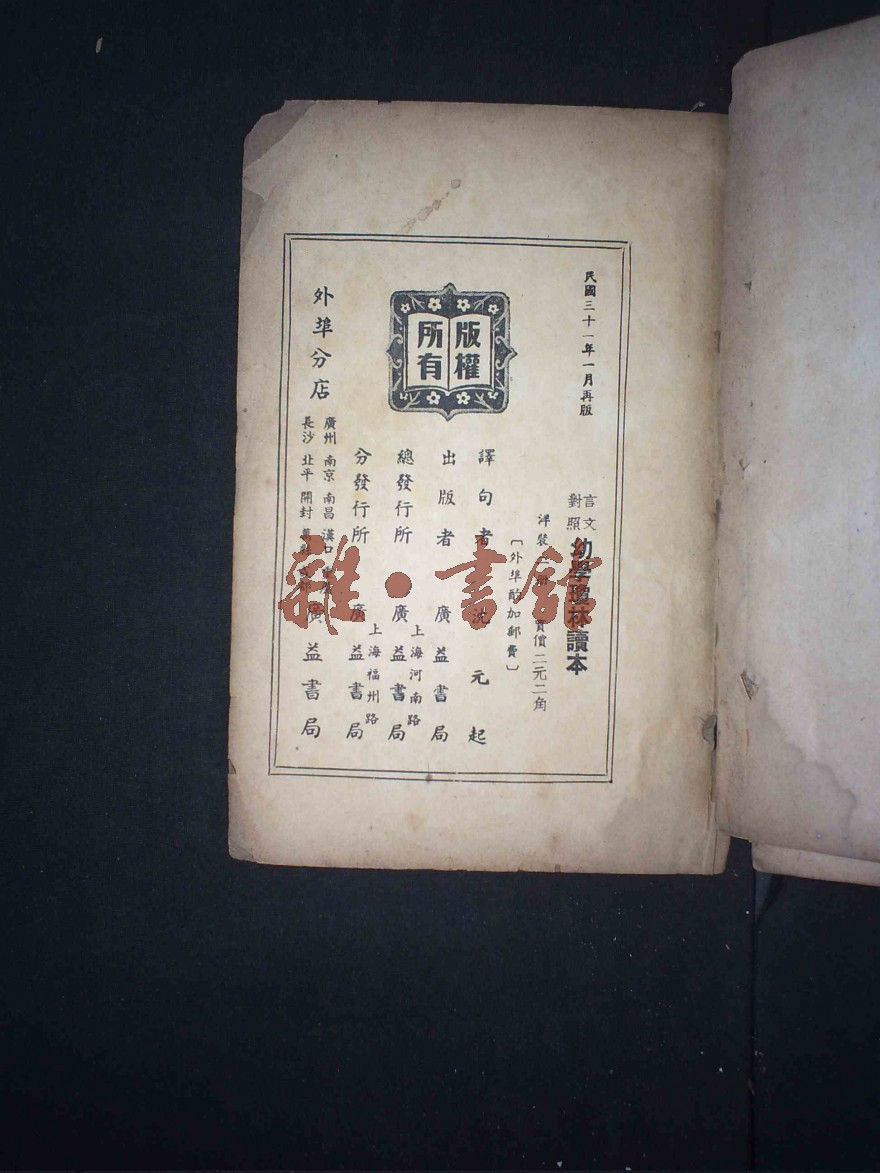 民國三十一年一月再版
言文
對照
幼學瓊林讀本
洋裝 實價二元二角
〔外埠酌加郵費〕
版權
所有
譯句者 沈元起
出版者 廣益書局
總發行所 上海河南路 廣益書局
分發行所 上海福州路 廣益書局
外埠分店 廣州 南京 南昌 漢口
長沙 北平 開封
廣益書局
雜·書館